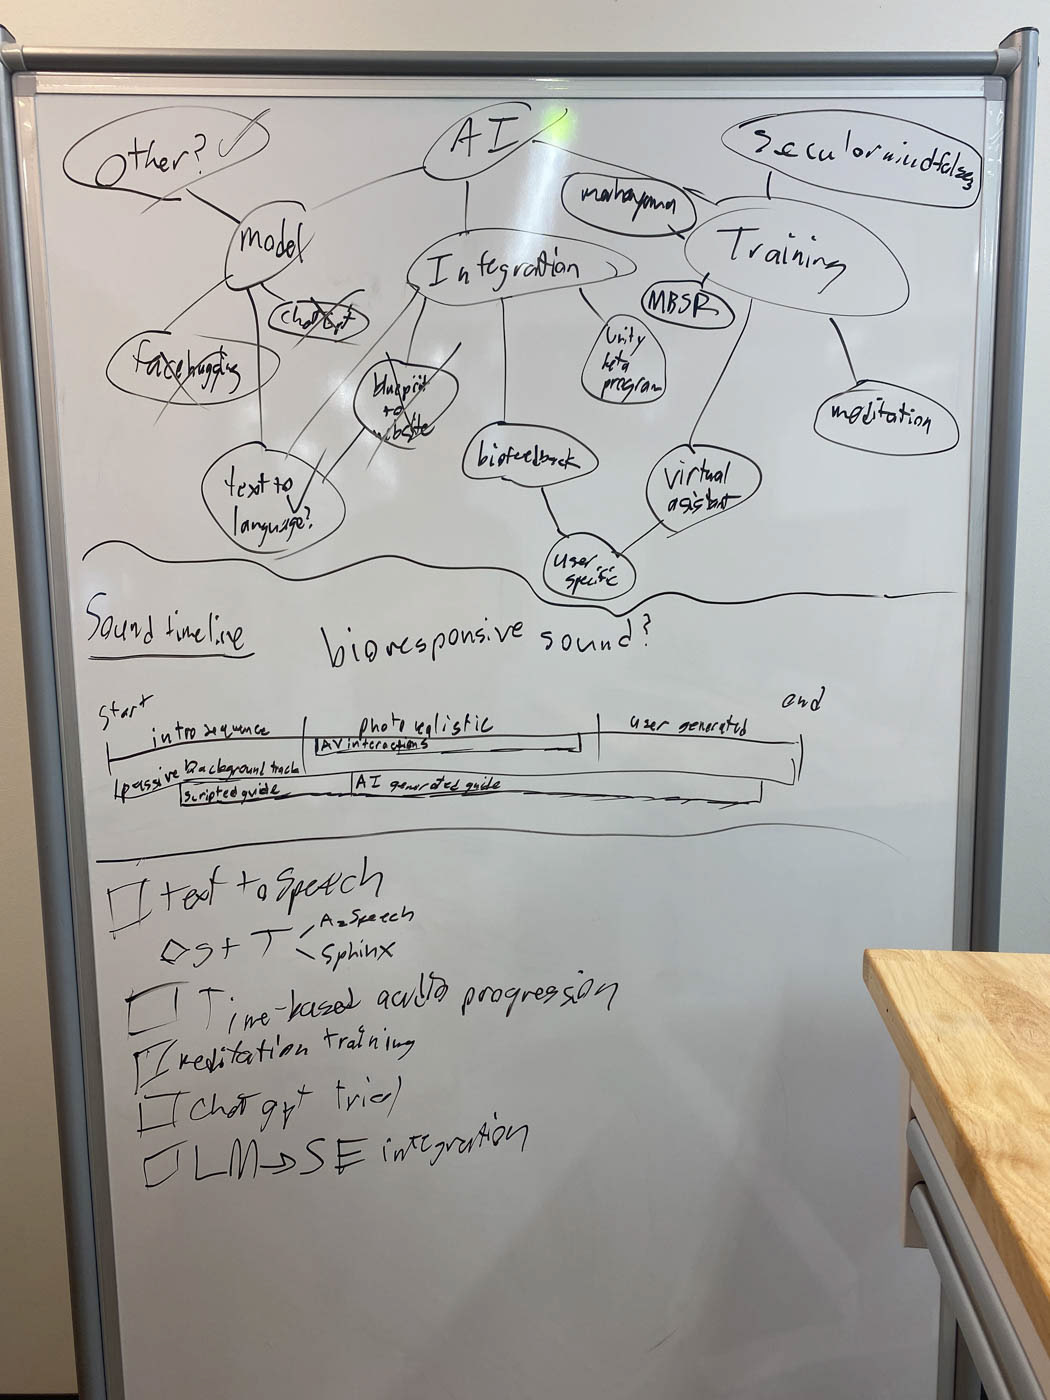 Other?
AI
Secular mindfulness
model
mahayana
Integration
Training
MBSR
chat gpt
facehugging
Unity
beta
program
blueprint
to
website
meditation
biofeedback
virtual
asistant
text to
language?
user
specific
Sound timeline
bioresponsive sound?
start
end
intro sequence
photo realistic
user generated
AV interactions
passive background track
scripted guide
AI generated guide
text to Speech
S + T
Sphinx
Time-based audio progression
meditation training
Chat gpt trial
LM→SE integration